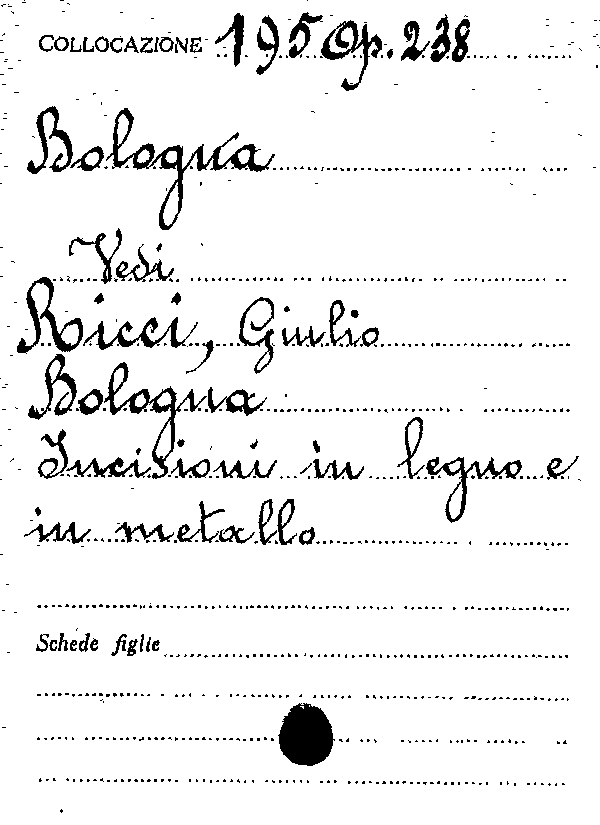 COLLOCAZIONE 195 Op. 238
Bologna
Vedi
Ricci, Giulio
Bologna
Incisioni in legno e
in metallo
Schede figlie